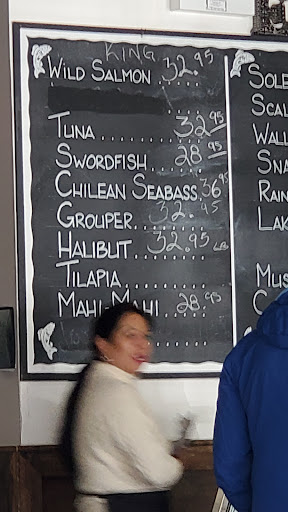 KING
WILD SALMON 32.95
TUNA ...... 32.95
SWORDFISH .. 28.95
CHILEAN SEABASS. 36.95
GROUPER.. 32.95
HALIBUT.. 32.95 LB
TILAPIA ..........
MAHI MAHI ... 28.95
SOLE
SCAL
WALL
SNA
RAIN
LAK
MUS
C